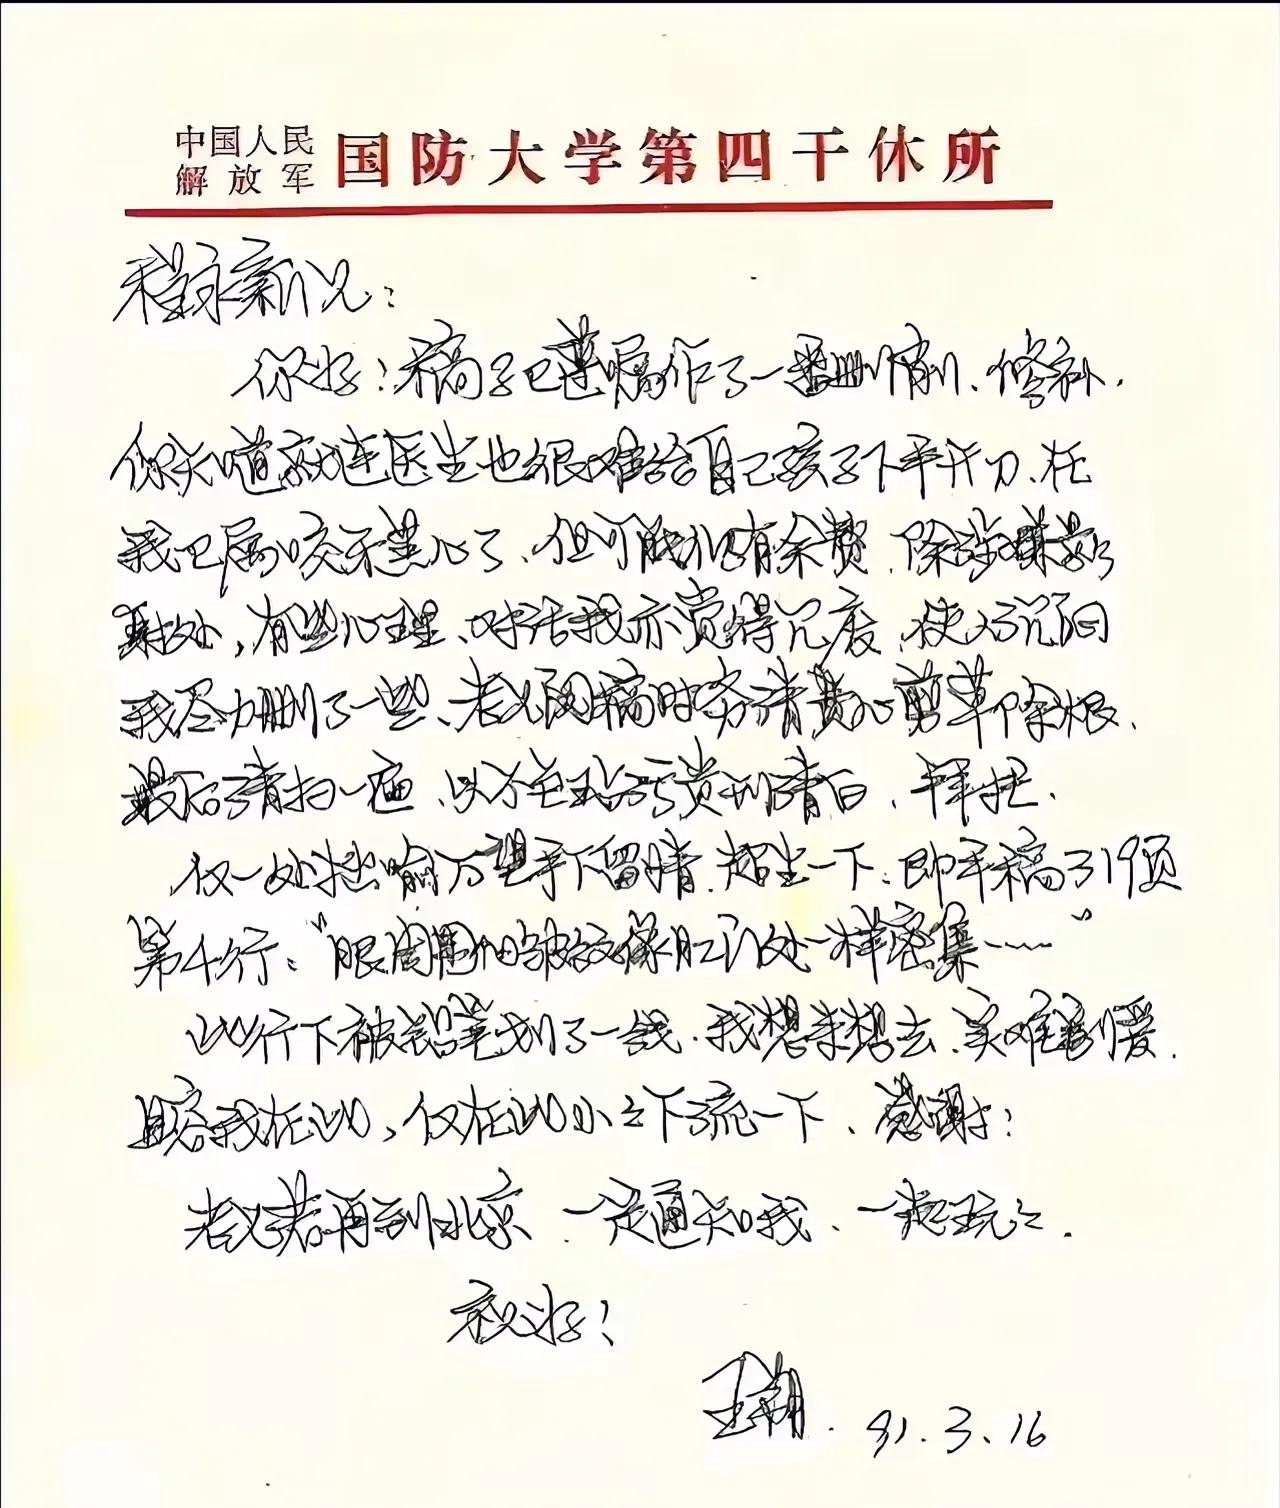 中国人民
解放军
国防大学第四干休所
程永新兄：
你好！稿子已遵嘱作了一番删削、修补.
你知道就连医生也很难给自己孩子下手开刀、在
我已属咬牙黑心了、但可能仍有余赘、除涉嫌影
射处，有些心理、对话我亦觉得冗废、使人沉闷
我尽力删了一些、老兄阅稿时务请费心剪草除根、
最后清扫一遍、以才在我污责刊清白、拜托.
仅一处拙喻万望手下留情、超生一下、即手稿了19页
第4行："眼周围细皱纹像肛门处一样密集……"
此行下被铅笔划了一线、我想来想去、实难割爱、
且容我在此，仅在此小小下流一下、感谢！
老兄若再到北京、一定通知我、一起玩玩.
祝好！
王朔. 91.3.16